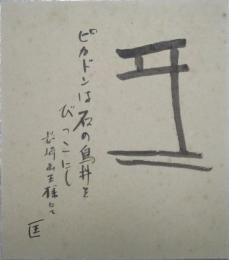 ピカドンは石の鳥井を
びっこにし
長崎山王様にて
匡